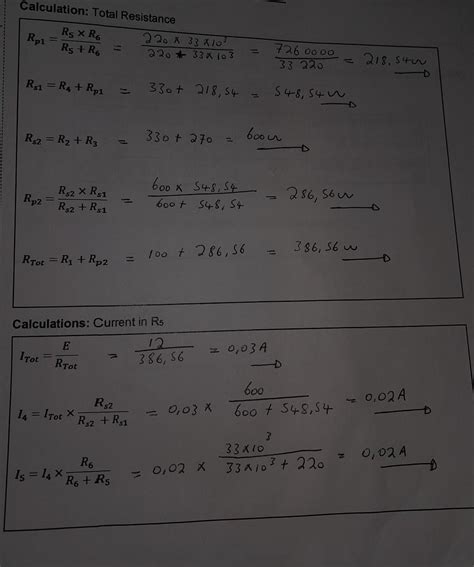 Calculation: Total Resistance
R_p1 = (R_5 × R_6)/(R_5 + R_6) = (220 × 33 × 10³)/(220 + 33 × 10³) = 7260000/33220 = 218,54 ω
R_s1 = R_4 + R_p1 = 330 + 218,54 = 548,54 ω
R_s2 = R_2 + R_3 = 330 + 270 = 600 ω
R_p2 = (R_s2 × R_s1)/(R_s2 + R_s1) = (600 × 548,54)/(600 + 548,54) = 286,56 ω
R_Tot = R_1 + R_p2 = 100 + 286,56 = 386,56 ω
Calculations: Current in R5
I_Tot = E/R_Tot = 12/386,56 = 0,03 A
I_4 = I_Tot × R_s2/(R_s2 + R_s1) = 0,03 × 600/(600 + 548,54) = 0,02 A
I_5 = I_4 × R_6/(R_6 + R_5) = 0,02 × (33 × 10³)/(33 × 10³ + 220) = 0,02 A